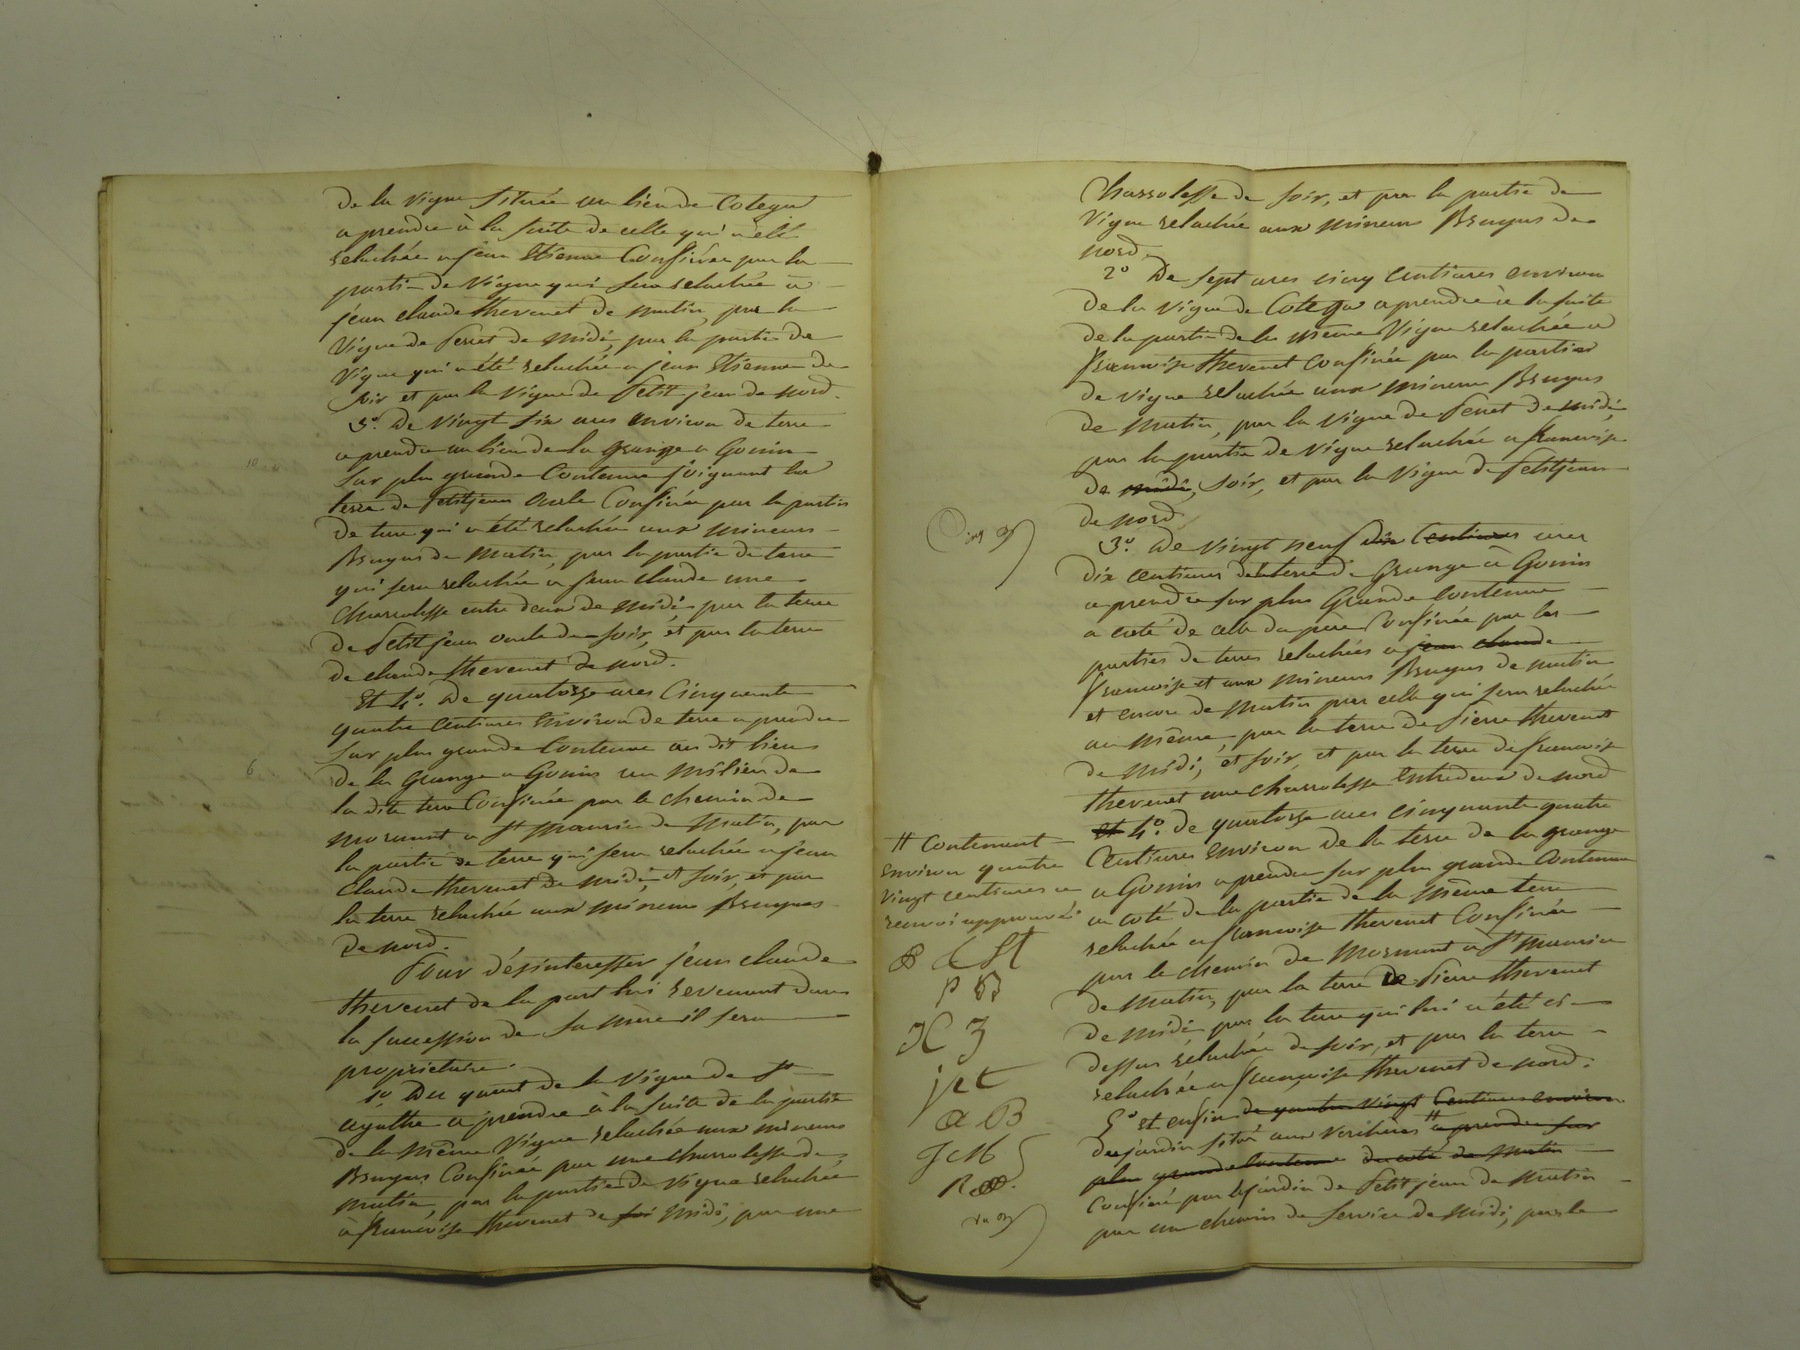 de la vigne située au lieu de Cotega
a prendre à la suite de celle qui a été
relachée a jean Etienne Confinée par la
partie de vigne qui sera relachée à
jean claude thevenet de matin, par la
vigne de ferret de midi, par la partie de
vigne qui a été relachée a jean Etienne de
soir et par la vigne de Petit jean de nord.
3°. de vingt six ares environ de terre
a prendre au lieu de la grange a Gonin
sur plus grande Contenue joignant la
terre de Petitjean Confinée par la partie
de terre qui a été relachée aux mineurs
Bruyas de matin, par la partie de terre
qui sera relachée a jean claude une
charrolesse entre deux de midi, par la terre
de Petit jean de soir, et par la terre
de claude thevenet de nord.
Et 4°. de quatorze ares Cinquante
quatre centiares Environ de terre a prendre
sur plus grande Contenue au dit lieu
de la Grange a Gonin au milieu de
la dite terre Confinée par le chemin de
mornant a St maurice de matin, par
la partie de terre qui sera relachée a jean
Claude thevenet de midi, et soir, et par
la terre relachée aux mineurs Bruyas
de nord.
Pour désinteresser jean claude
thevenet de la part lui revenant dans
la succession de sa mère il sera
proprietaire.
1°. Du quart de la vigne de St
agathe a prendre à la suite de la partie
de la même vigne relachée aux mineurs
Bruyas Confinée par une charrolesse de
matin, par la partie de vigne relachée
à francoise thevenet de soi midi, par une
charrolesse de soir, et par la partie de
vigne relachée aux mineurs Bruyas de
nord.
2° De sept ares cinq centiares environ
de la vigne de Cotega a prendre à la suite
de la partie de la même vigne relachée a
francoise thevenet Confinée par la partie
de vigne relachée aux mineurs Bruyas
de matin, par la vigne de ferret de midi,
par la partie de vigne relachée a francoise
de midi, soir, et par la vigne de Petitjean
de nord.
3°. de vingt neuf dix Centiares ares
dix centiares de la terre de Grange à Gonin
a prendre sur plus Grande contenue
a coté de celle du père Confinée par les
parties de terres relachées a jean claude
francoise et aux mineurs Bruyas de matin
et encore de matin par celle qui sera relachée
au même, par la terre de Pierre thevenet
de midi, et soir, et par la terre de francoise
thevenet une charrolesse Entredeux de nord
et 4°. de quatorze ares cinquante quatre
Centiares Environ de la terre de la grange
a Gonin a prendre sur plus grande Contenue
a coté de la partie de la même terre
relachée a francoise thevenet Confinée
par le chemin de Mornant a St maurice
de matin, par la terre de Pierre thevenet
de midi par la terre qui lui a été ci
dessus relachée de soir, et par la terre
relachée a francoise thevenet de nord.
5° et enfin de quatre vingt Centiares environ
du jardin situé aux verchères # a prendre sur
plus grande contenue du coté de matin
Confiné par le jardin de Petit jean de matin
par un chemin de service de midi, par la
Cinq
# Contenant
Environ quatre
vingt centiares
renvoi approuvé
P B
jet
a B